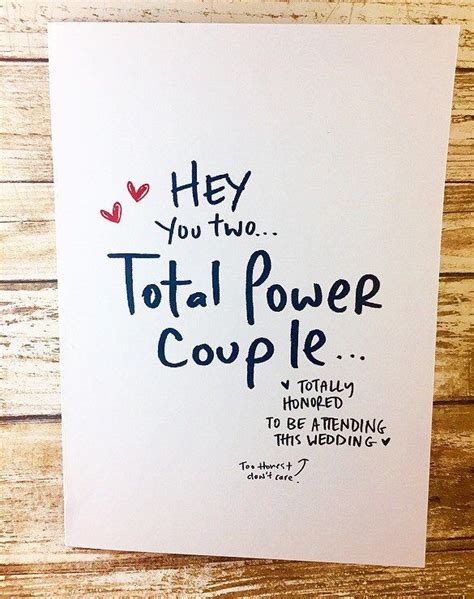 HEY
You two...
Total Power
Couple...
♥ TOTALLY
HONORED
TO BE ATTENDING
THIS WEDDING ♥
Too Honest
don't care!